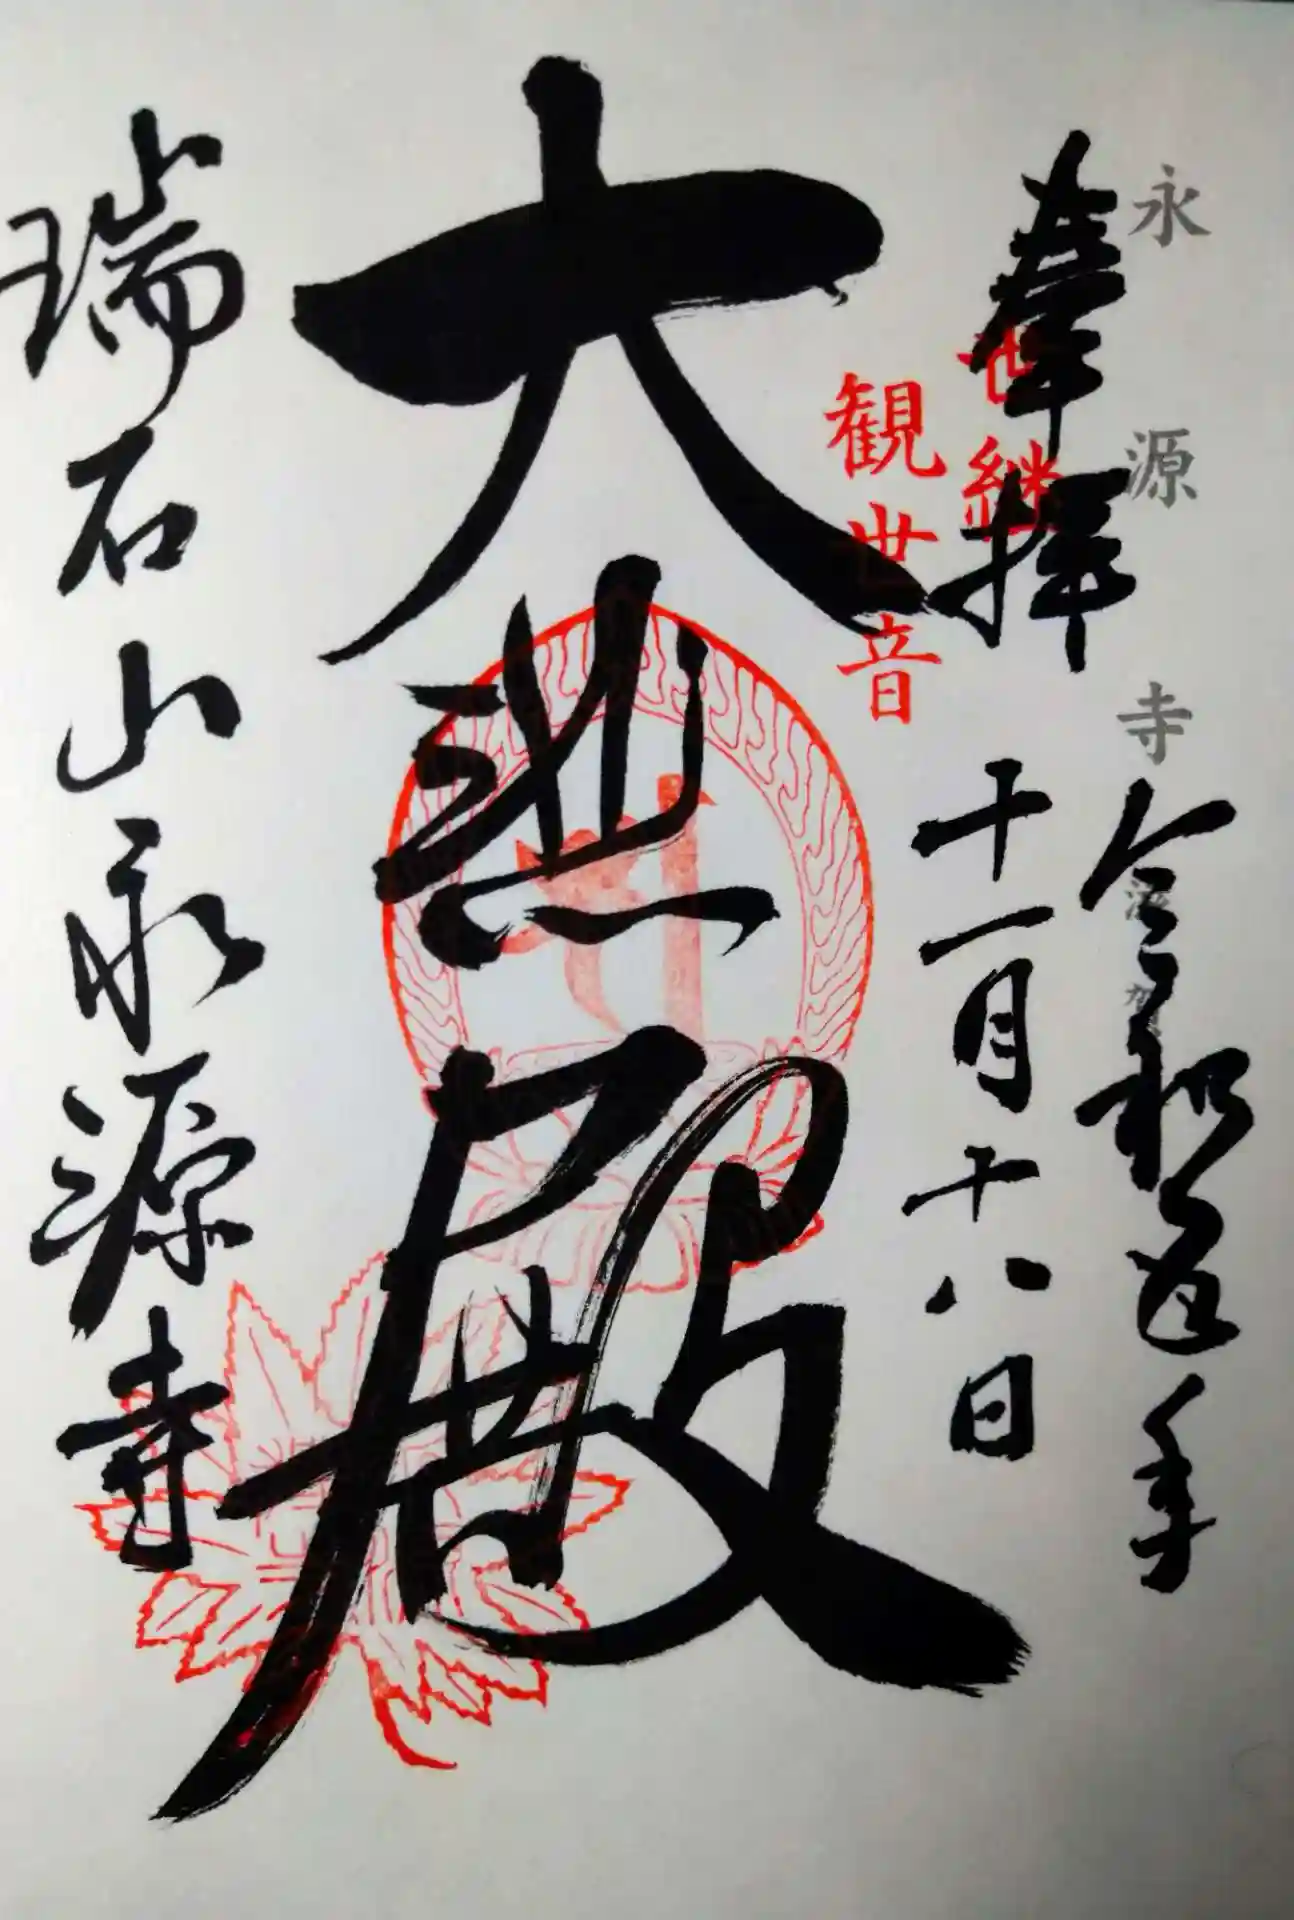 永源寺
滋賀
令和 年
奉拝
十一月十八日
世継
観世音
大悲殿
瑞石山永源寺